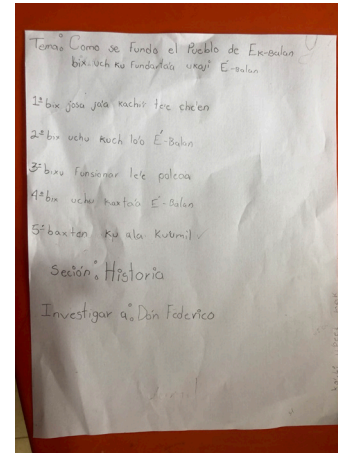 Tema: Como se Fundo el Pueblo de Ek-Balan
bix uch ku Fundarta'a ukaji E'-Balan
1º bix josa ja'a kachir te'e che'en
2º bix uchu kuch lo'o E'-Balan
3º bixu Funsionar le'e palcoa
4º bix uchu kaxta'o E'-Balan
5º baxten ku ala kubmil
Seción: Historia
Investigar a: Don Federico